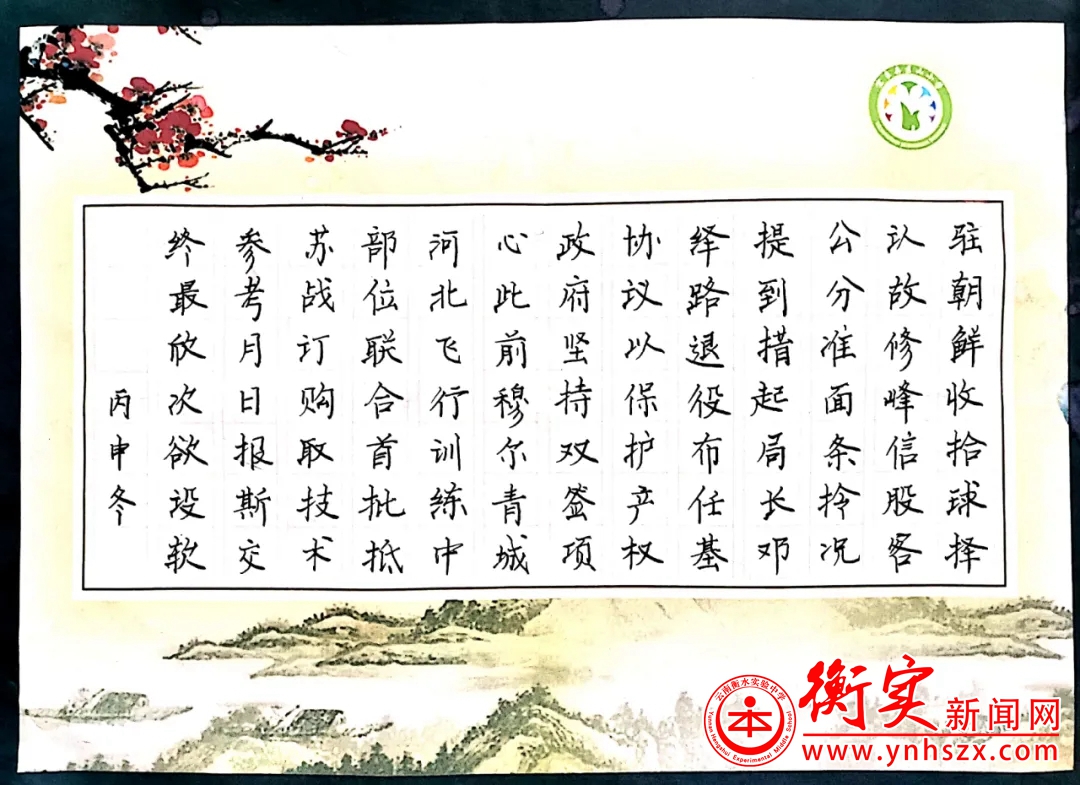 驻朝鲜收拾球择
认故修峰信股客
公分准面条拎况
提到措起局长邓
绎路退役布任基
协议以保护产权
政府坚持双签项
心此前穆尔青城
河北飞行训练中
部位联合首批抵
苏战订购取技术
参考月日报斯交
终最欣次欲设软
丙申冬
云南衡水实验中学
Yunnan Hengshui Experimental Middle School
本
衡实新闻网
www.ynhszx.com